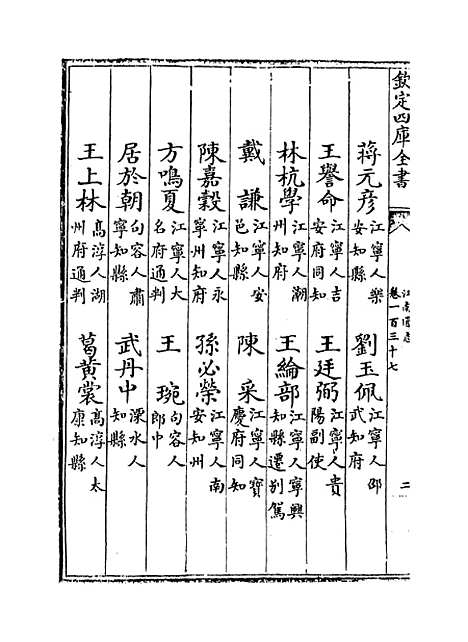 欽定四庫全書
江南通志
卷一百三十七
二
蔣元彦 江寧人樂安知縣 劉玉佩 江寧人邵武知府
王譽命 江寧人吉安府同知 王廷弼 江寧人貴陽副使
林杭學 江寧人潮州知府 王綸部 江寧人寧興知縣遷别駕
戴謙 江寧人安邑知縣 陳采 江寧人寶慶府同知
陳嘉穀 江寧人永寧州知府 孫必榮 江寧人南安知州
方鳴夏 江寧人大名府通判 王琬 句容人郎中
居於朝 句容人肅寧知縣 武丹中 溧水人知縣
王上林 高淳人湖州府通判 葛黄裳 高淳人太康知縣